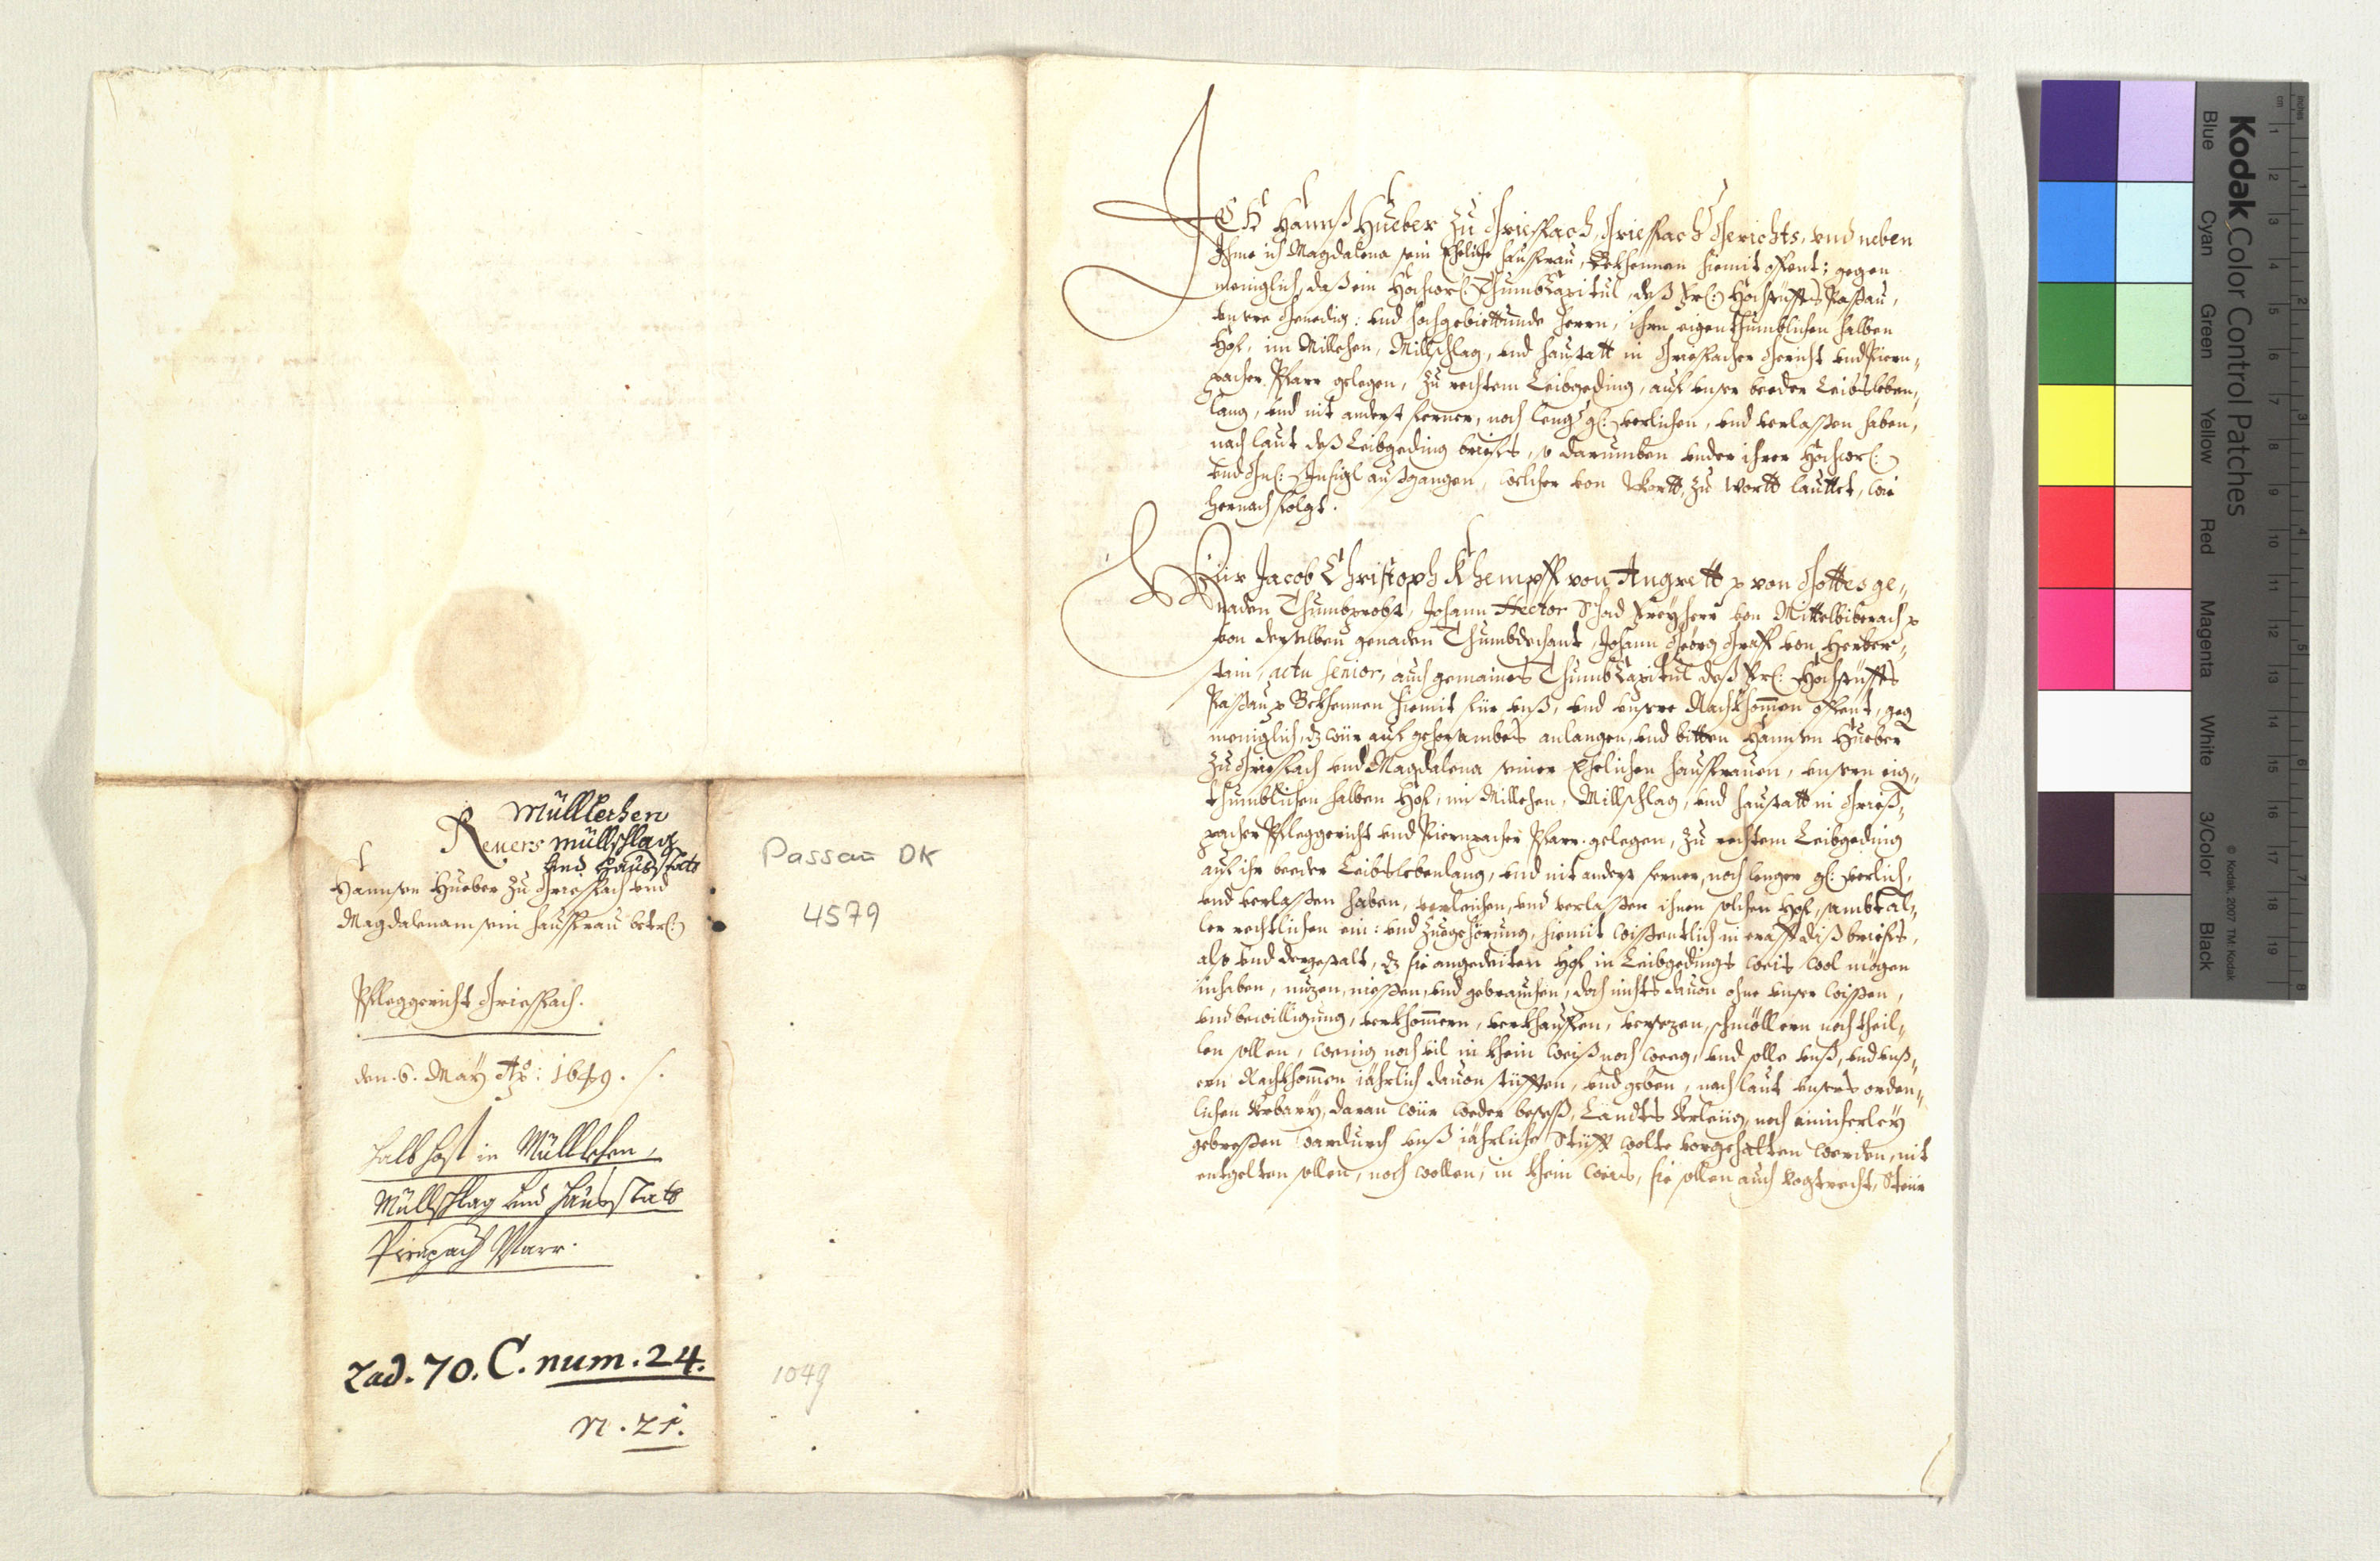 Müllleehen
Revers müllschlag
und Haussstatt
Hannsen Hueber zu Griespach und
Magdalenam sein haussfrau betr:
Pfleggericht Griespach.
den. 6. Maÿ Ao: 1649.
halb hoff in Müllehen,
Müllschlag und haussstatt
Pirnpach Pfarr.
Lad. 70. C. num. 24.
N. 21.
Passau DK
4579
1649
ICH Hannß Hueber zu Griespach, Griespach Gerichts, vnd neben
Ihme ich Magdalena sein Eheliche haussfrau, Bekhennen hiemit offent: gegen
meniglich, daß ein Hochwr: ThumbCapitul, deß Fr: Hochstüffts Passau,
vnsere Genedig: vnd hochgebiettunde herrn, ihrn aigenthumblichen halben
Hof, im Millehen, Millschlag, vnd haustatt in Griespacher Gericht vnd Piern„
pacher Pfarr gelegen, zu rechtem Leibgeding, auf vnser beeder Leibsleben„
lang, vnd nit anderst ferner, noch lenger g: verlichen, vnd verlassen haben,
nach laut deß Leibgeding brieffs, so darumben vnder ihrer Hochwr:
vnd Gn: Insigl außgangen, welcher von Wortt, zu Wortt lauttet, wie
hernach folgt.
Wür Jacob Christoph Khempff von Angrett p von Gottes ge„
naden Thumbprobst, Johann Hector Schad Freÿherr von Mittelbiberach p
von derselben genaden Thumbdechant, Johann Georg Graff von Herber„
stain, actu Senior, auch gemaines ThumbCapitul deß Fr: Hochstüffts
Passau p Bekhennen hiemit für vnß, vnd vnsere Nachkhommen offent, geg
meniglich, dz wür auf gehorsambes anlangen, vnd bitten Hannsen Hueber
zu Griespach vnd Magdalena seiner Ehelichen haussfrauen, vnsern eig„
thumblichen halben Hof, im Millehen, Millschlag, vnd haustatt in Grieß„
pacher Pfleggericht vnd Piernpacher Pfarr gelegen, zu rechtem Leibgeding
auf ihr beeder Leibslebenlang, vnd nit anderst ferner, noch lenger g: verlich,
vnd verlassen haben, verleichen, vnd verlassen ihnen solchen Hof, sambt al„
ler rechtlichen ein: vnd Zuegehörung, hiemit wissentlich in crafft diß brieffs,
also vnd dergestalt, dz sie angedeiten Hof in Leibgedings weis wol mögen
inhaben, nuzen, niessen, vnd gebrauchen, doch nichts dauon ohne vnser wissen,
vnd bewilligung, verkhommern, verkhauffen, versezen, schmöllern noch thail„
len sollen, wenig noch vil in khein weiß noch weeg, vnd solle vnß, vnd vnß„
ern Nachkhommen iährlich dauon stüfften, vnd geben, nach laut vnsers orden„
lichen Vrbary, daran wür weder beseß, Landts Verleüg, noch einicherleÿ
gebressen wardurch vnß iährliche Stüfft wolte vorgehalten werden, nit
entgelten sollen, noch wollen, in khein weis, sie sollen auch Vogtrecht, Steür